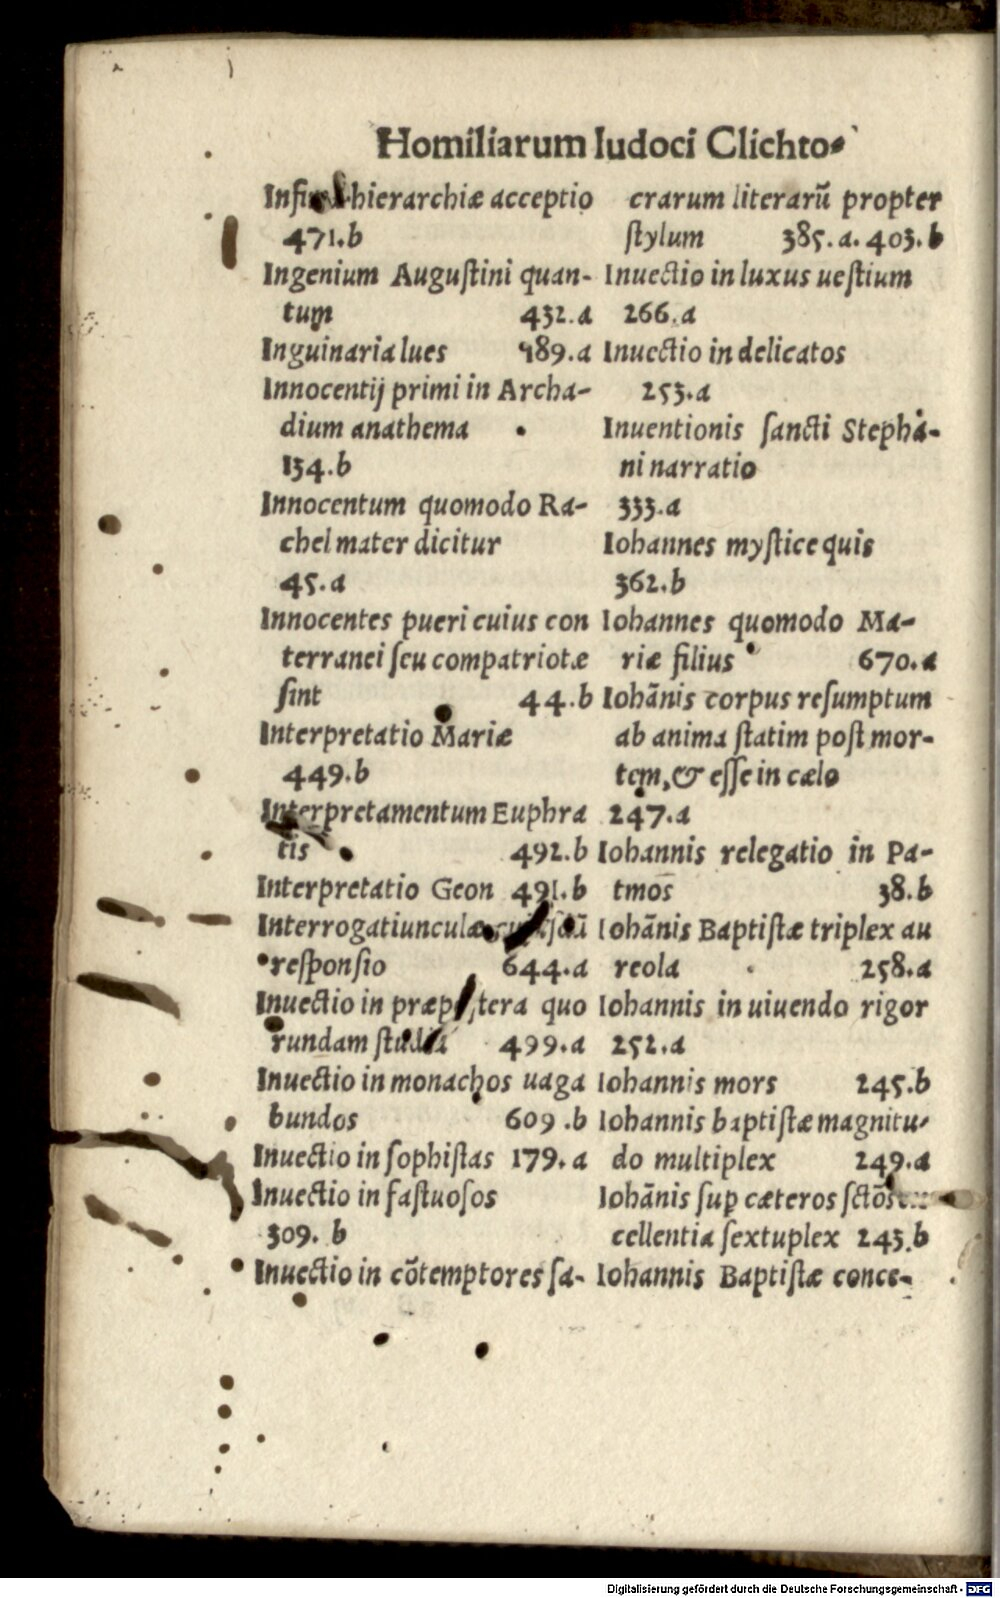 Homiliarum Iudoci Clichto-
hierarchiæ acceptio
471.b
Ingenium Augustini quan-
tum 432.a
Inguinaria lues 189.a
Innocentij primi in Archa-
dium anathema
134.b
Innocentum quomodo Ra-
chel mater dicitur
45.a
Innocentes pueri cuius con
terranei seu compatriotæ
sint 44.b
Interpretatio Mariæ
449.b
Interpretamentum Euphra
tis 492.b
Interpretatio Geon 491.b
Interrogatiunculæ
responsio 644.a
Inuectio in quo
rundam 499.a
Inuectio in monachos uaga
bundos 609.b
Inuectio in sophistas 179.a
Inuectio in fastuosos
309.b
Inuectio in cōtemptores sa-
crarum literarū propter
stylum 385.a. 403.b
Inuectio in luxus uestium
266.a
Inuectio in delicatos
253.a
Inuentionis sancti Stepha-
ni narratio
333.a
Iohannes mystice quis
362.b
Iohannes quomodo Ma-
riæ filius 670.a
Iohānis corpus resumptum
ab anima statim post mor-
tem, & esse in cælo
247.a
Iohannis relegatio in Pa-
tmos 38.b
Iohānis Baptistæ triplex au
reola 258.a
Iohannis in uiuendo rigor
252.a
Iohannis mors 245.b
Iohannis baptistæ magnitu-
do multiplex 249.a
Iohānis sup cæteros sctōs
cellentia sextuplex 243.b
Iohannis Baptistæ conce-
Digitalisierung gefördert durch die Deutsche Forschungsgemeinschaft - DFG